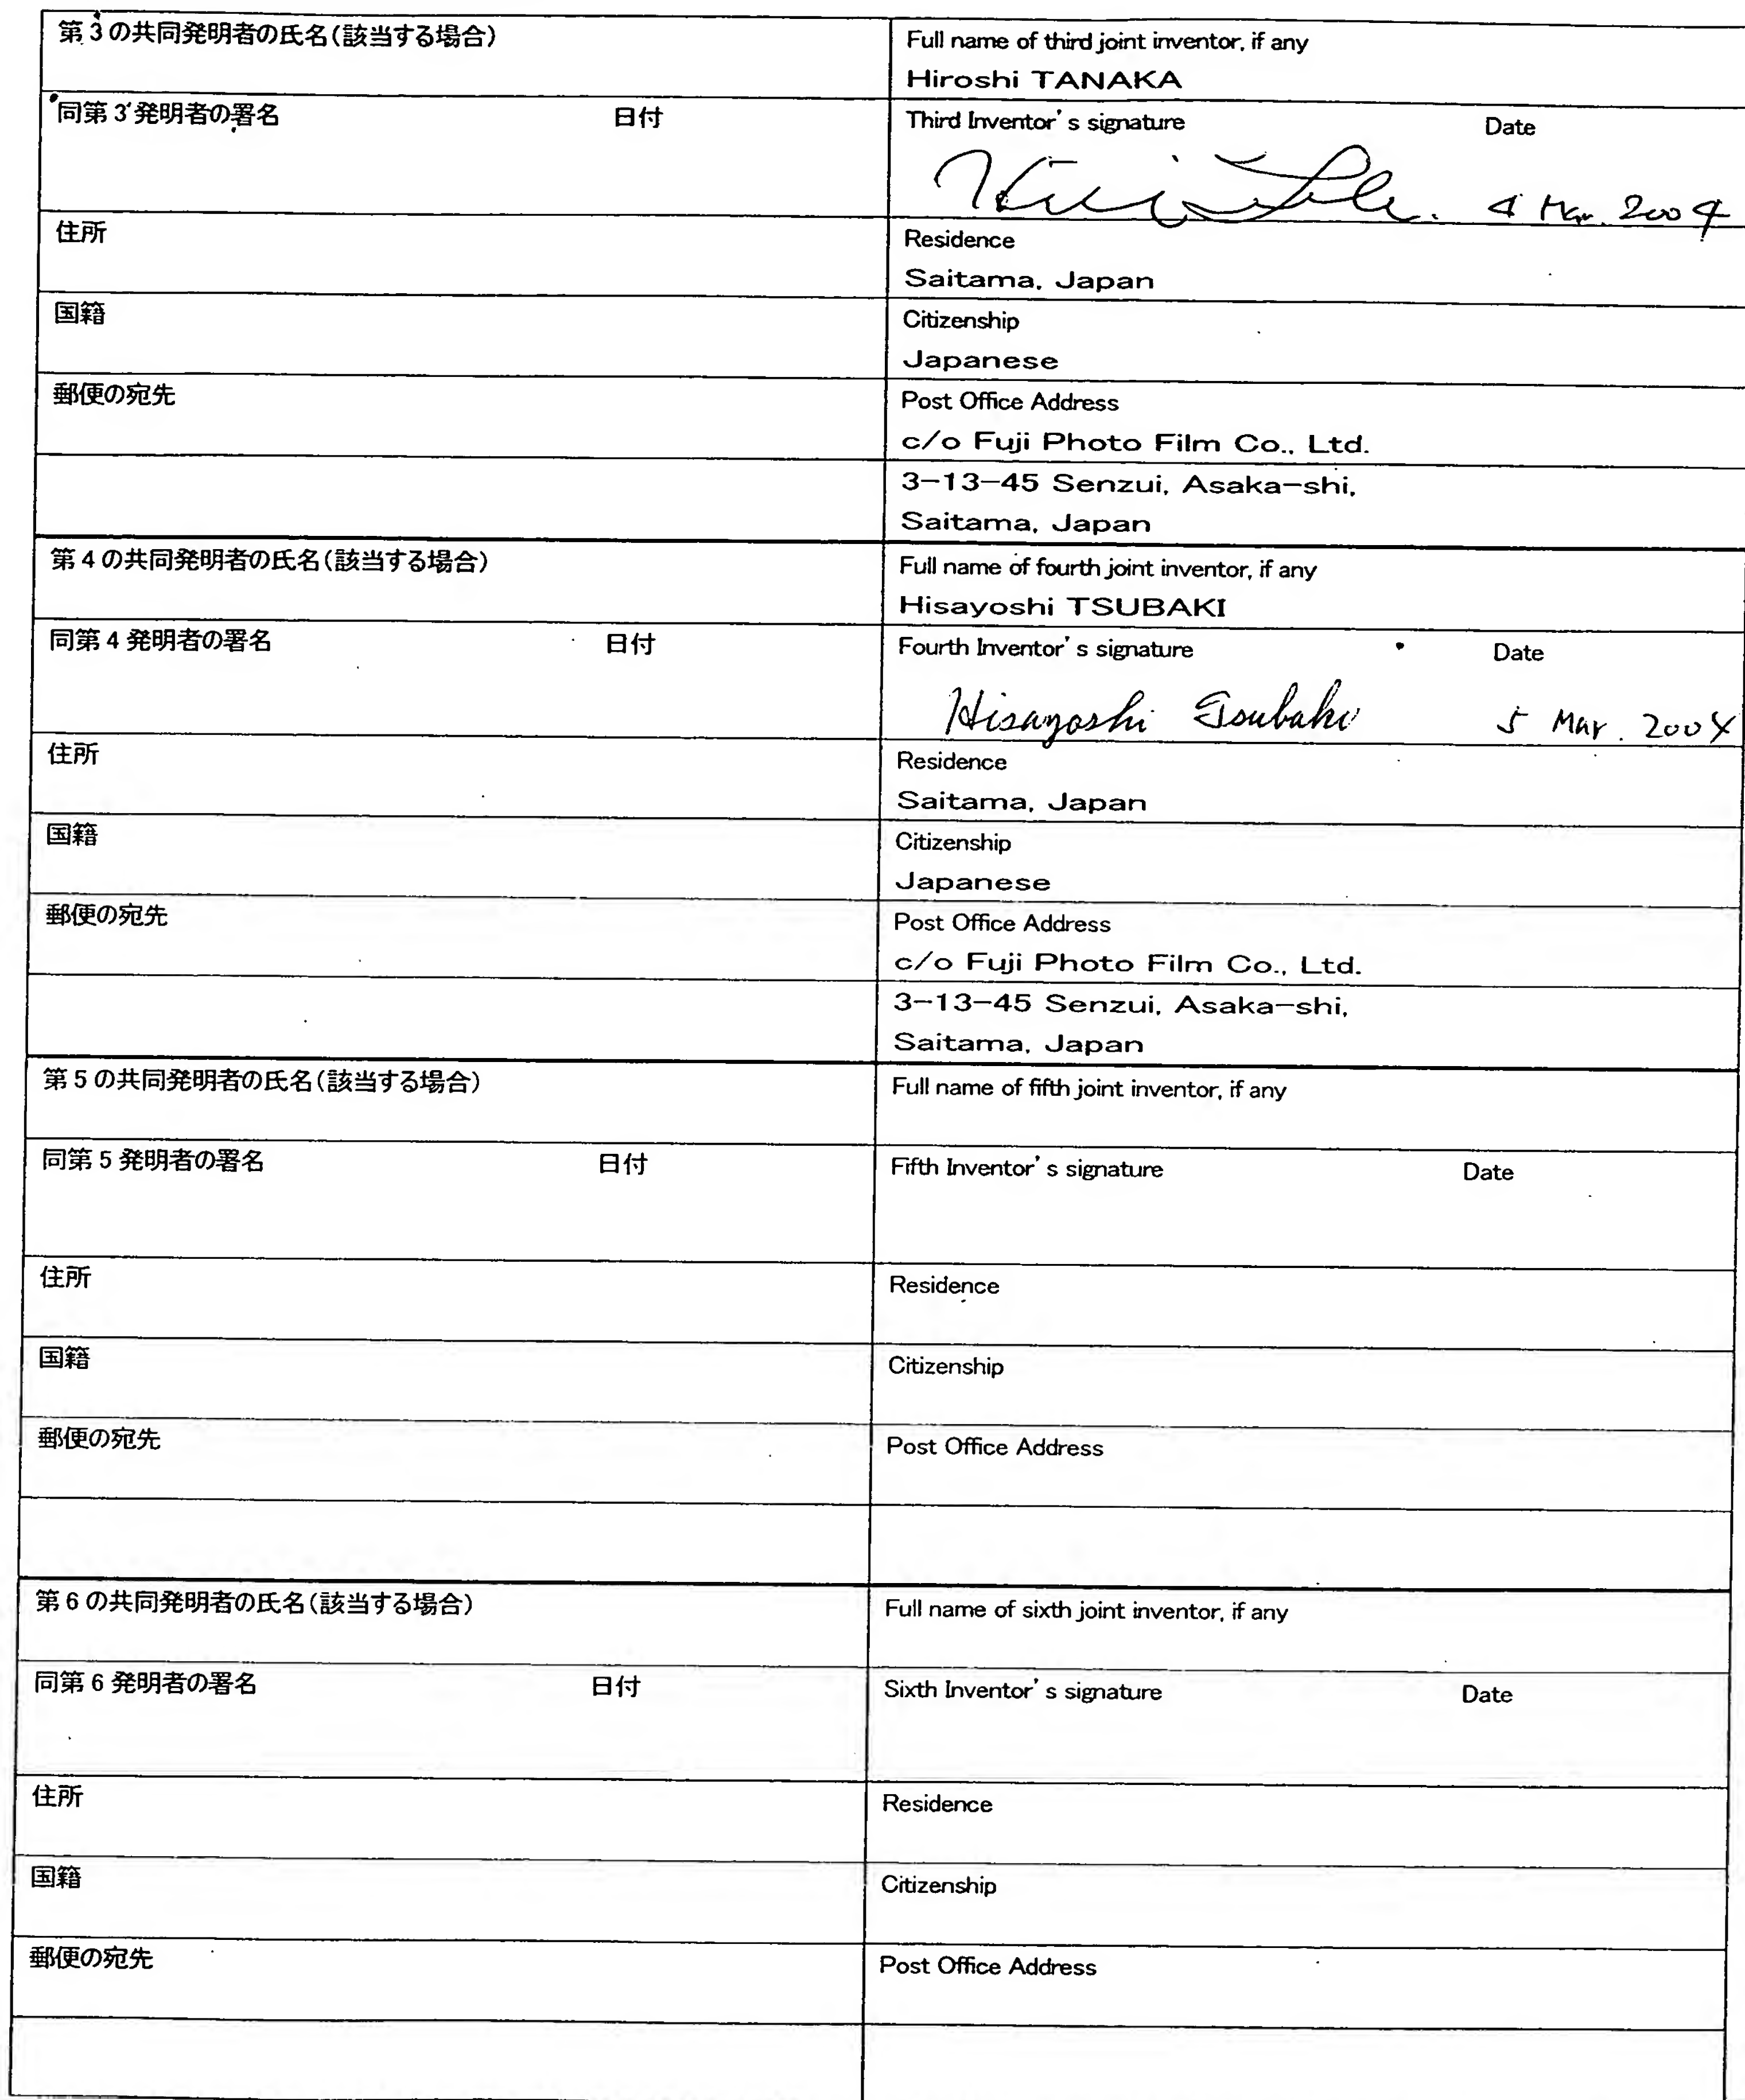 第3の共同発明者の氏名(該当する場合)
Full name of third joint inventor, if any
Hiroshi TANAKA
同第3発明者の署名 日付
Third Inventor's signature Date
4 Mar. 2004
住所
Residence
Saitama, Japan
国籍
Citizenship
Japanese
郵便の宛先
Post Office Address
c/o Fuji Photo Film Co., Ltd.
3-13-45 Senzui, Asaka-shi,
Saitama, Japan
第4の共同発明者の氏名(該当する場合)
Full name of fourth joint inventor, if any
Hisayoshi TSUBAKI
同第4発明者の署名 日付
Fourth Inventor's signature Date
Hisayoshi Tsubaki 5 Mar. 2004
住所
Residence
Saitama, Japan
国籍
Citizenship
Japanese
郵便の宛先
Post Office Address
c/o Fuji Photo Film Co., Ltd.
3-13-45 Senzui, Asaka-shi,
Saitama, Japan
第5の共同発明者の氏名(該当する場合)
Full name of fifth joint inventor, if any
同第5発明者の署名 日付
Fifth Inventor's signature Date
住所
Residence
国籍
Citizenship
郵便の宛先
Post Office Address
第6の共同発明者の氏名(該当する場合)
Full name of sixth joint inventor, if any
同第6発明者の署名 日付
Sixth Inventor's signature Date
住所
Residence
国籍
Citizenship
郵便の宛先
Post Office Address